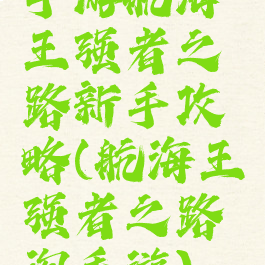 手游航海
王强者之
路新手攻
略(航海王
强者之路
手游)